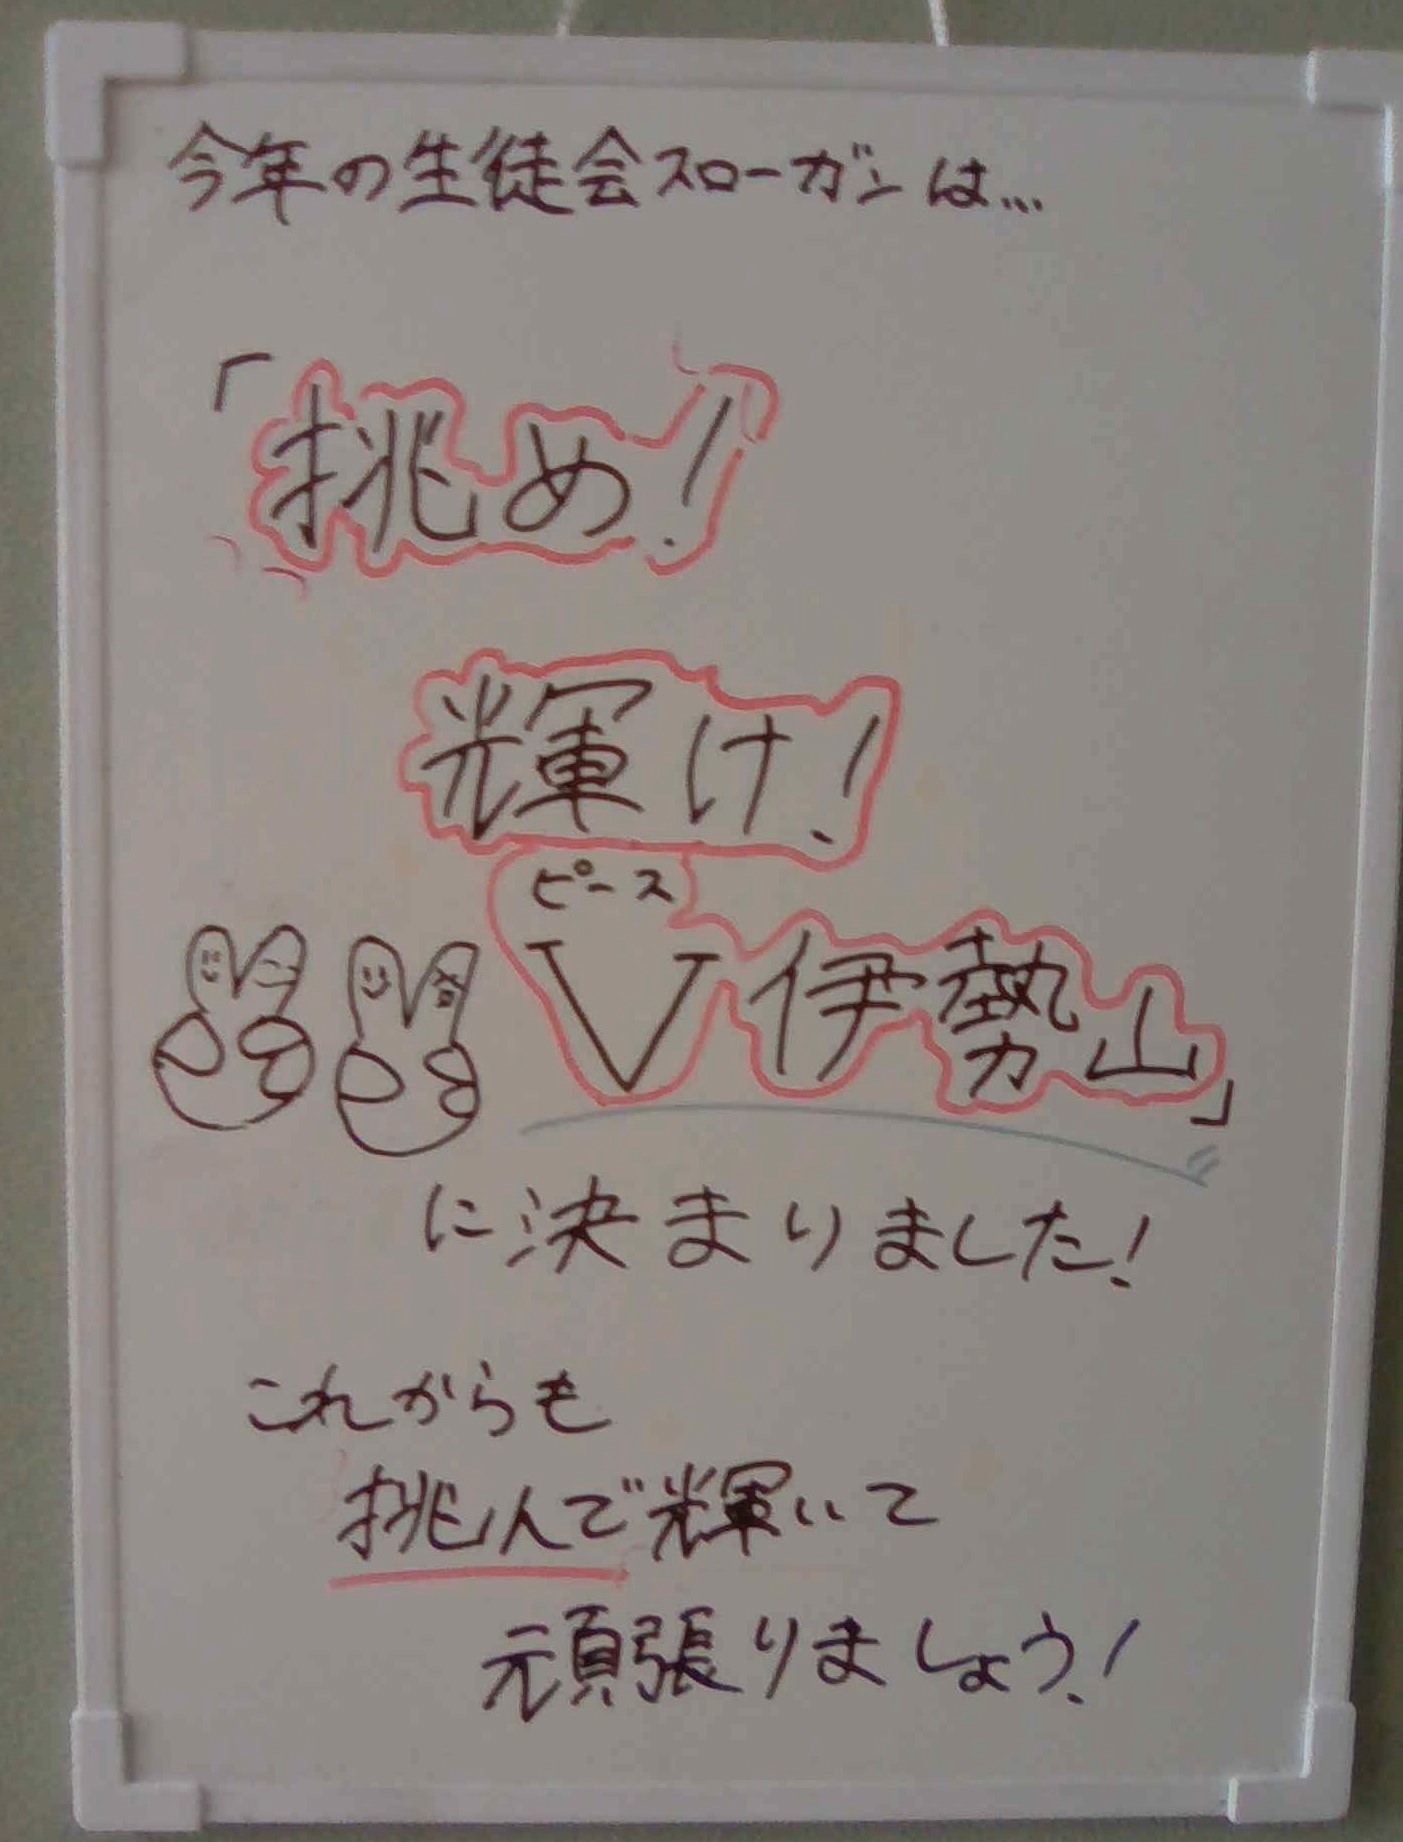 今年の生徒会スローガンは...
「挑め!
輝け!
ピース
V伊勢山」
に決まりました!
これからも
挑んで輝いて
頑張りましょう!